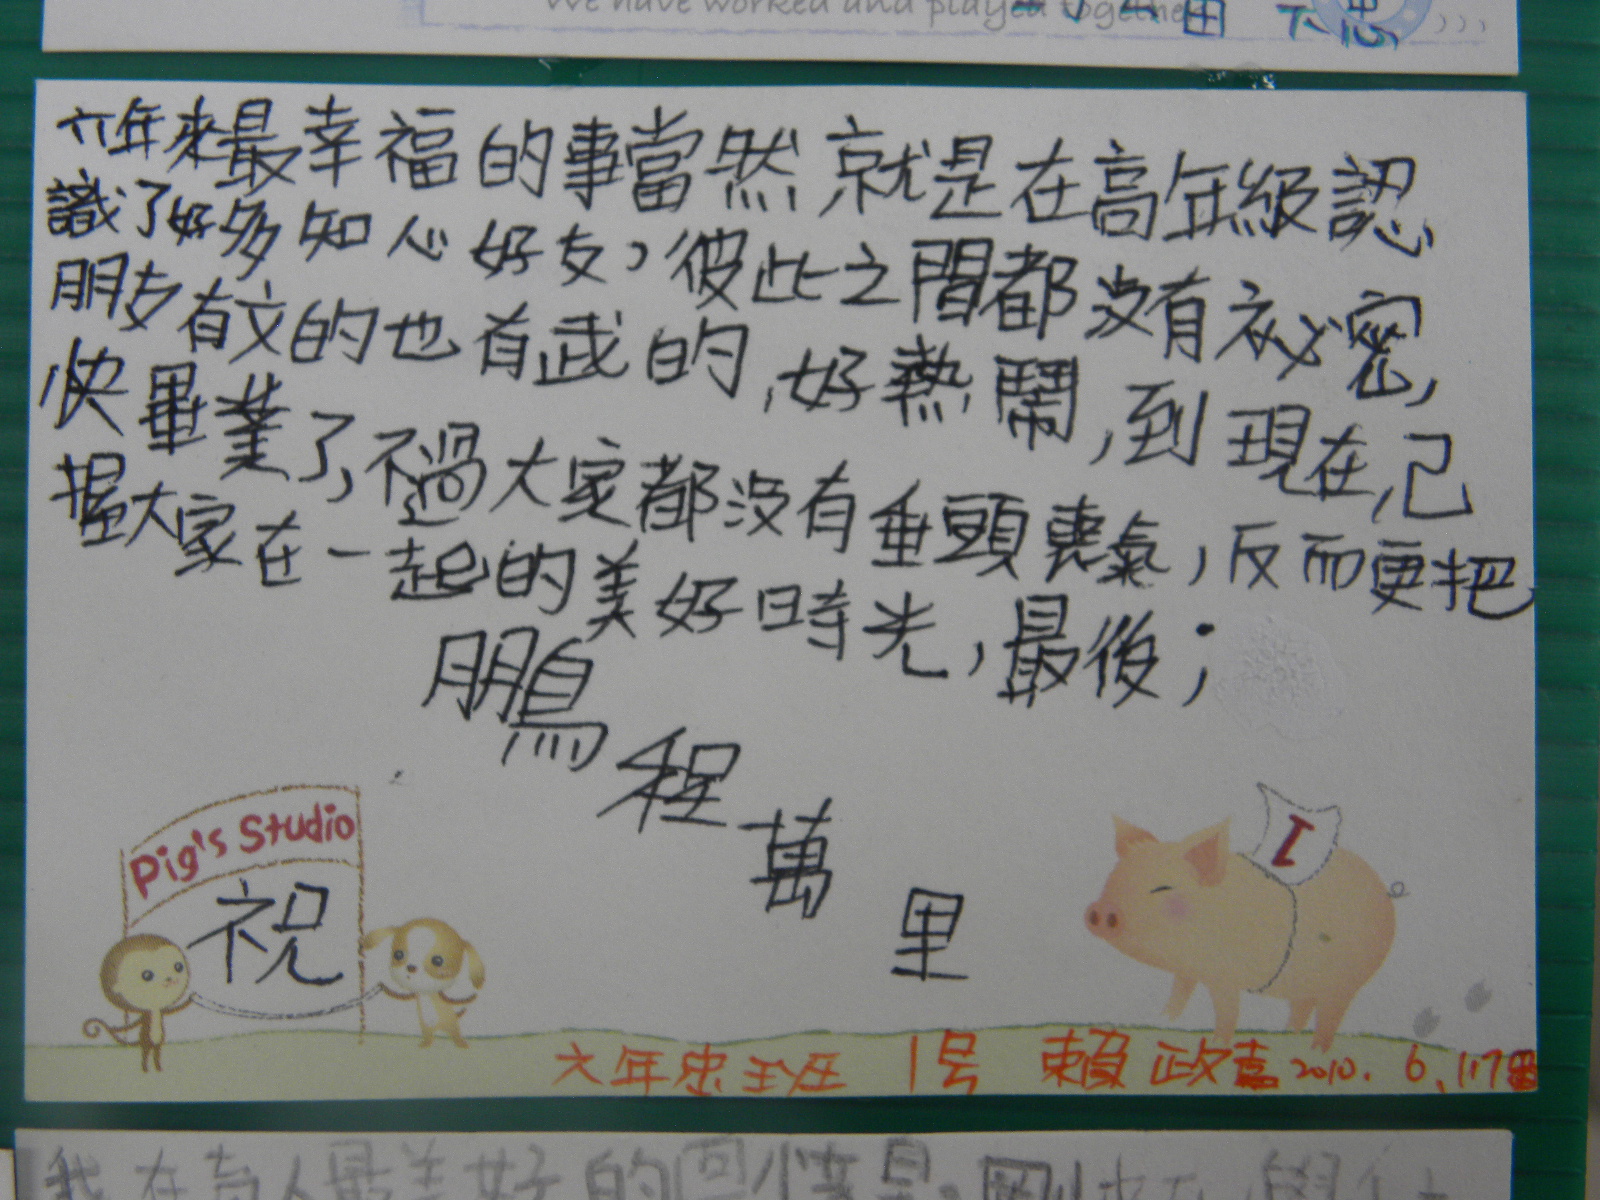 We have worked and played together
六年來最幸福的事當然就是在高年級認
識了好多知心好友，彼此之間都沒有祕密，
朋友有文的也有武的，好熱鬧，到現在，己
快畢業了，不過大家都沒有垂頭喪氣，反而更把
握大家在一起的美好時光，最後；
鵬程萬里
Pig's Studio
祝
I
六年忠班 1号 賴政嘉 2010. 6, 17